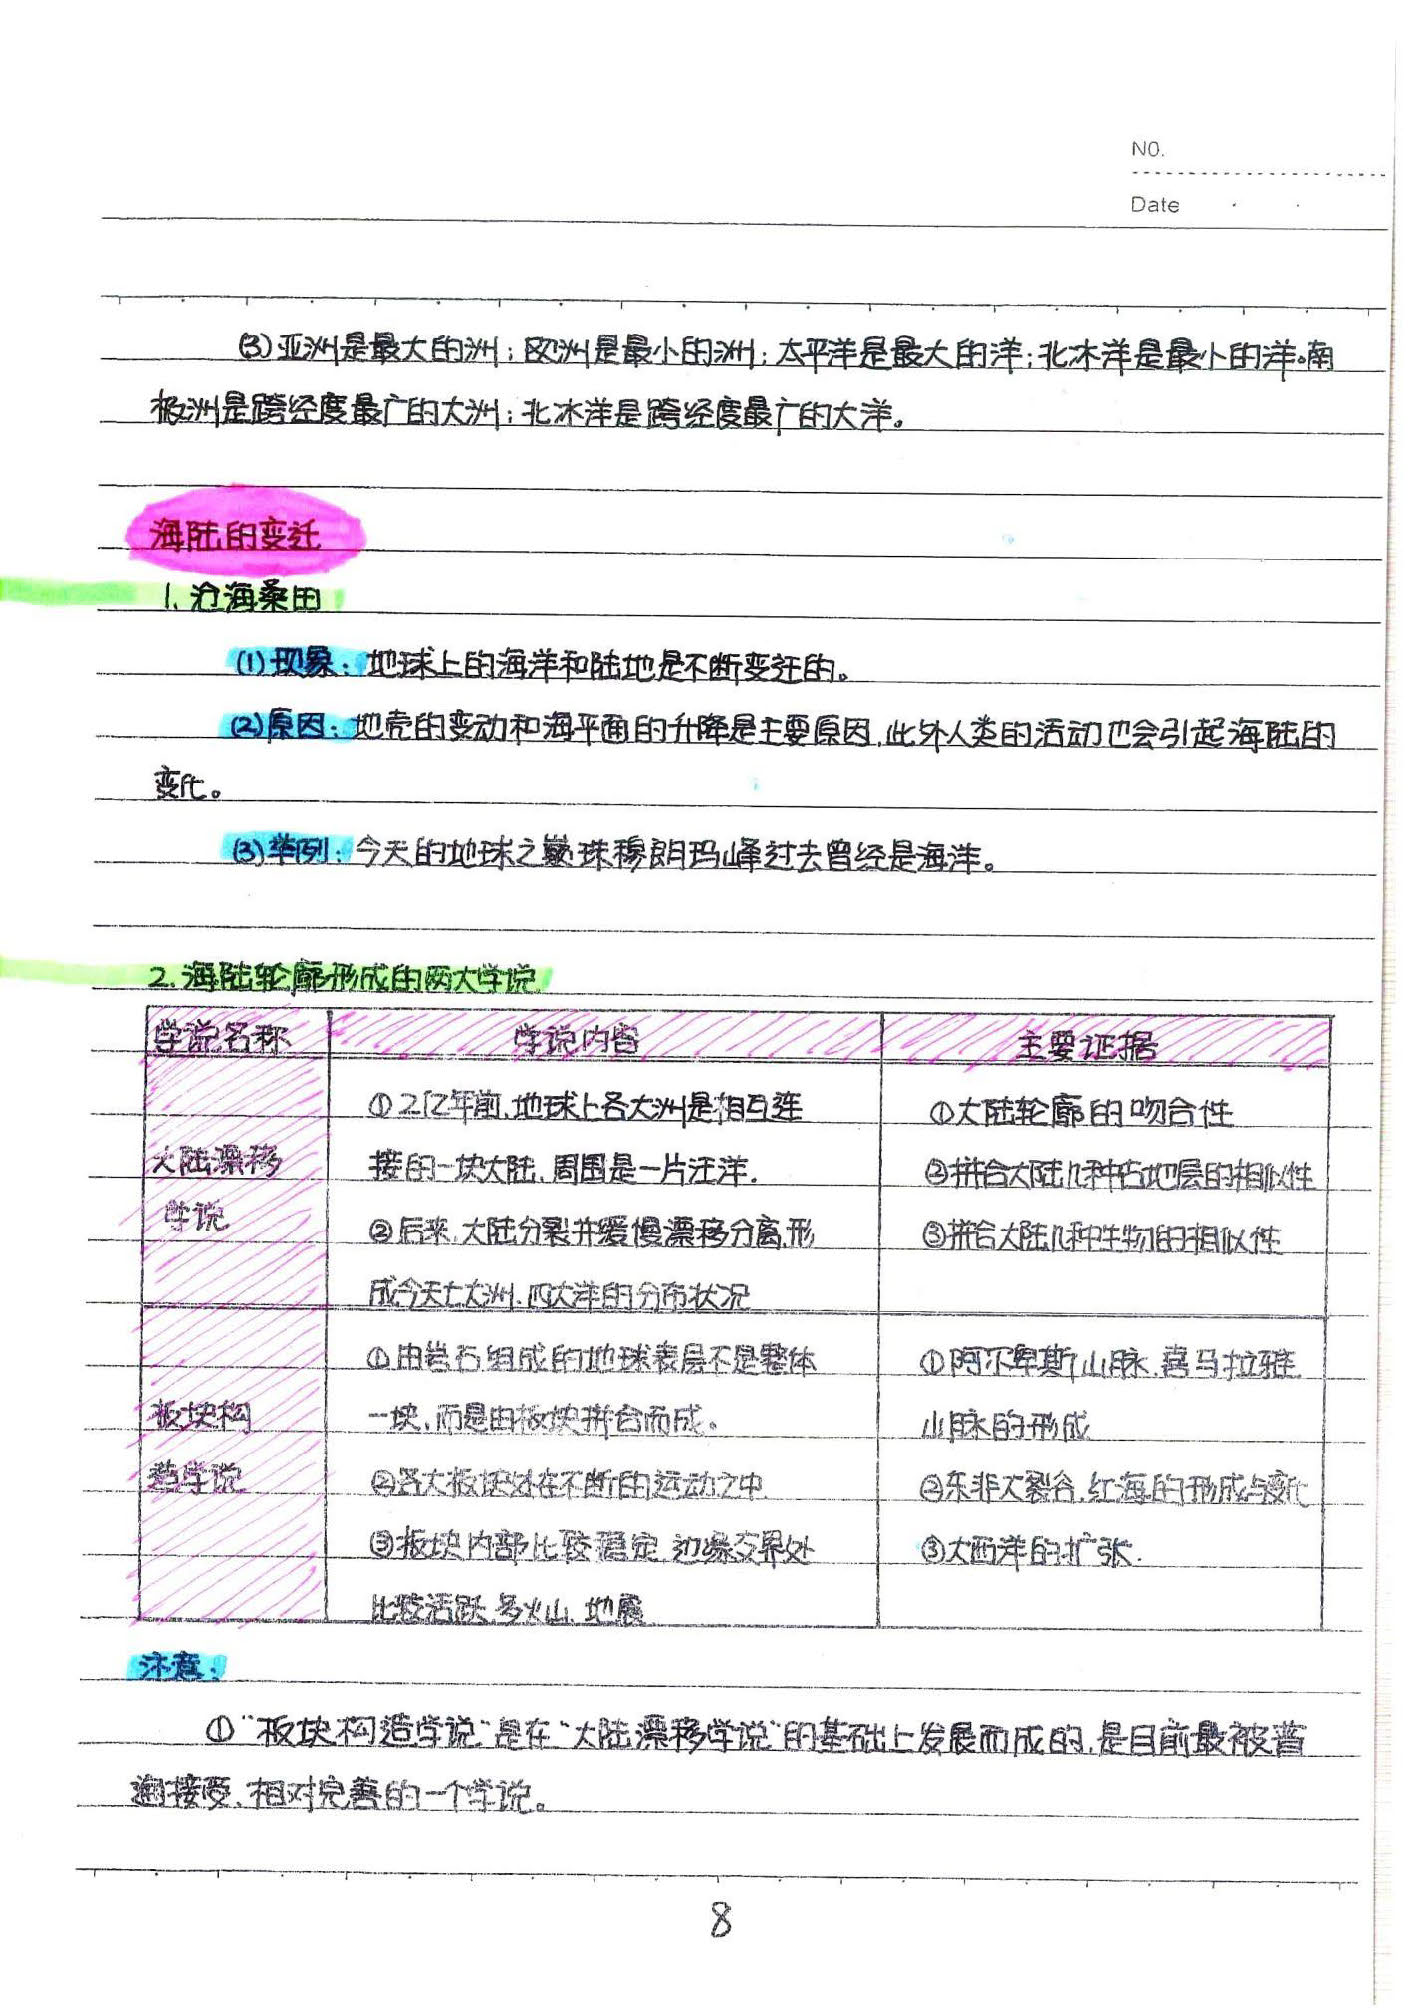 NO.
Date
(3)亚洲是最大的洲;欧洲是最小的洲;太平洋是最大的洋;北冰洋是最小的洋。南
极洲是跨经度最广的大洲;北冰洋是跨经度最广的大洋。
海陆的变迁
1.沧海桑田
(1)现象:地球上的海洋和陆地是不断变迁的。
(2)原因:地壳的变动和海平面的升降是主要原因,此外人类的活动也会引起海陆的
变化。
(3)举例:今天的地球之巅珠穆朗玛峰过去曾经是海洋。
2.海陆轮廓形成的两大学说
学说名称 学说内容 主要证据
①2亿年前,地球上各大洲是相互连 ①大陆轮廓的吻合性
大陆漂移 接的一块大陆,周围是一片汪洋. ②拼合大陆几种古地层的相似性
学说 ②后来,大陆分裂并缓慢漂移分离,形 ③拼合大陆几种生物的相似性
成今天七大洲、四大洋的分布状况
①由岩石组成的地球表层不是整体 ①阿尔卑斯山脉、喜马拉雅
板块构 一块,而是由板块拼合而成。 山脉的形成
造学说 ②各大板块处在不断的运动之中 ②东非大裂谷、红海的形成与变化
③板块内部比较稳定,边缘交界处 ③大西洋的扩张.
比较活跃,多火山、地震
注意:
①“板块构造学说”是在“大陆漂移学说”的基础上发展而成的,是目前最被普
遍接受、相对完善的一个学说。
8